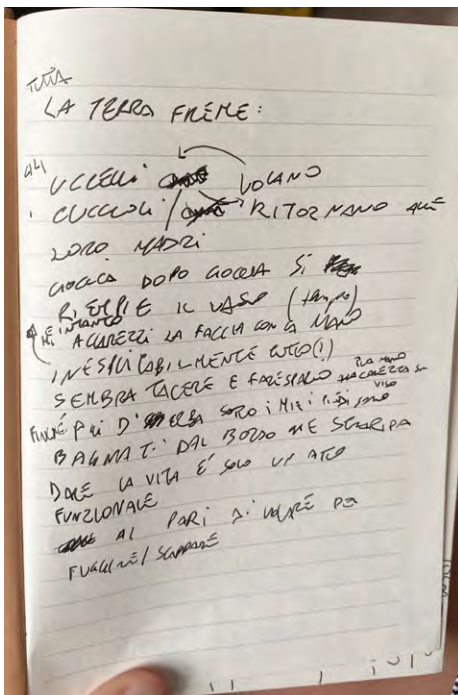 TUTTA
LA TERRA FREME:
GLI UCCELLI VOLANO
I CUCCIOLI / RITORNANO ALLE
LORO MADRI
GOCCIA DOPO GOCCIA SI
RIEMPIE IL VASO (tempo)
E INTANTO
MI ACCAREZZI LA FACCIA CON LA MANO
INESPLICABILMENTE TUTTO (!)
SEMBRA TACERE E FARE SPAZIO
TUA MANO
ACCAREZZA
VISO
FINCHÉ POI D' SONO I MIEI SONO
BAGNATI: DAL BORDO NE
DOVE LA VITA É SOLO UN ATTO
FUNZIONALE
AL PARI DI VOLARE PER
FUGGIRE / SCAPPARE